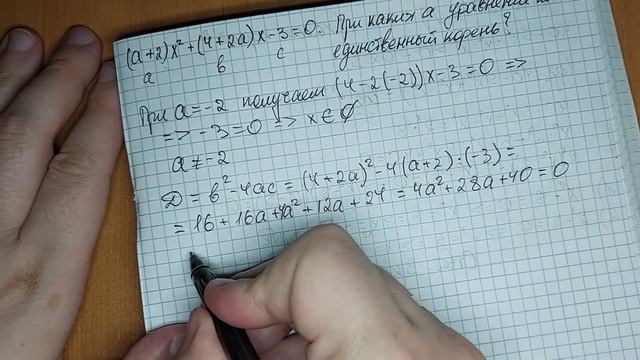 (a+2)x²+(4+2a)x-3=0. При каких a уравнение
a в c единственный корень?
При a=-2 получаем (4-2(-2))x-3=0 =>
=> -3=0 => x∈∅
a≠-2
Д = в²-4ac = (4+2a)²-4(a+2)·(-3) =
= 16+16a+4a²+12a+24 = 4a²+28a+40 = 0